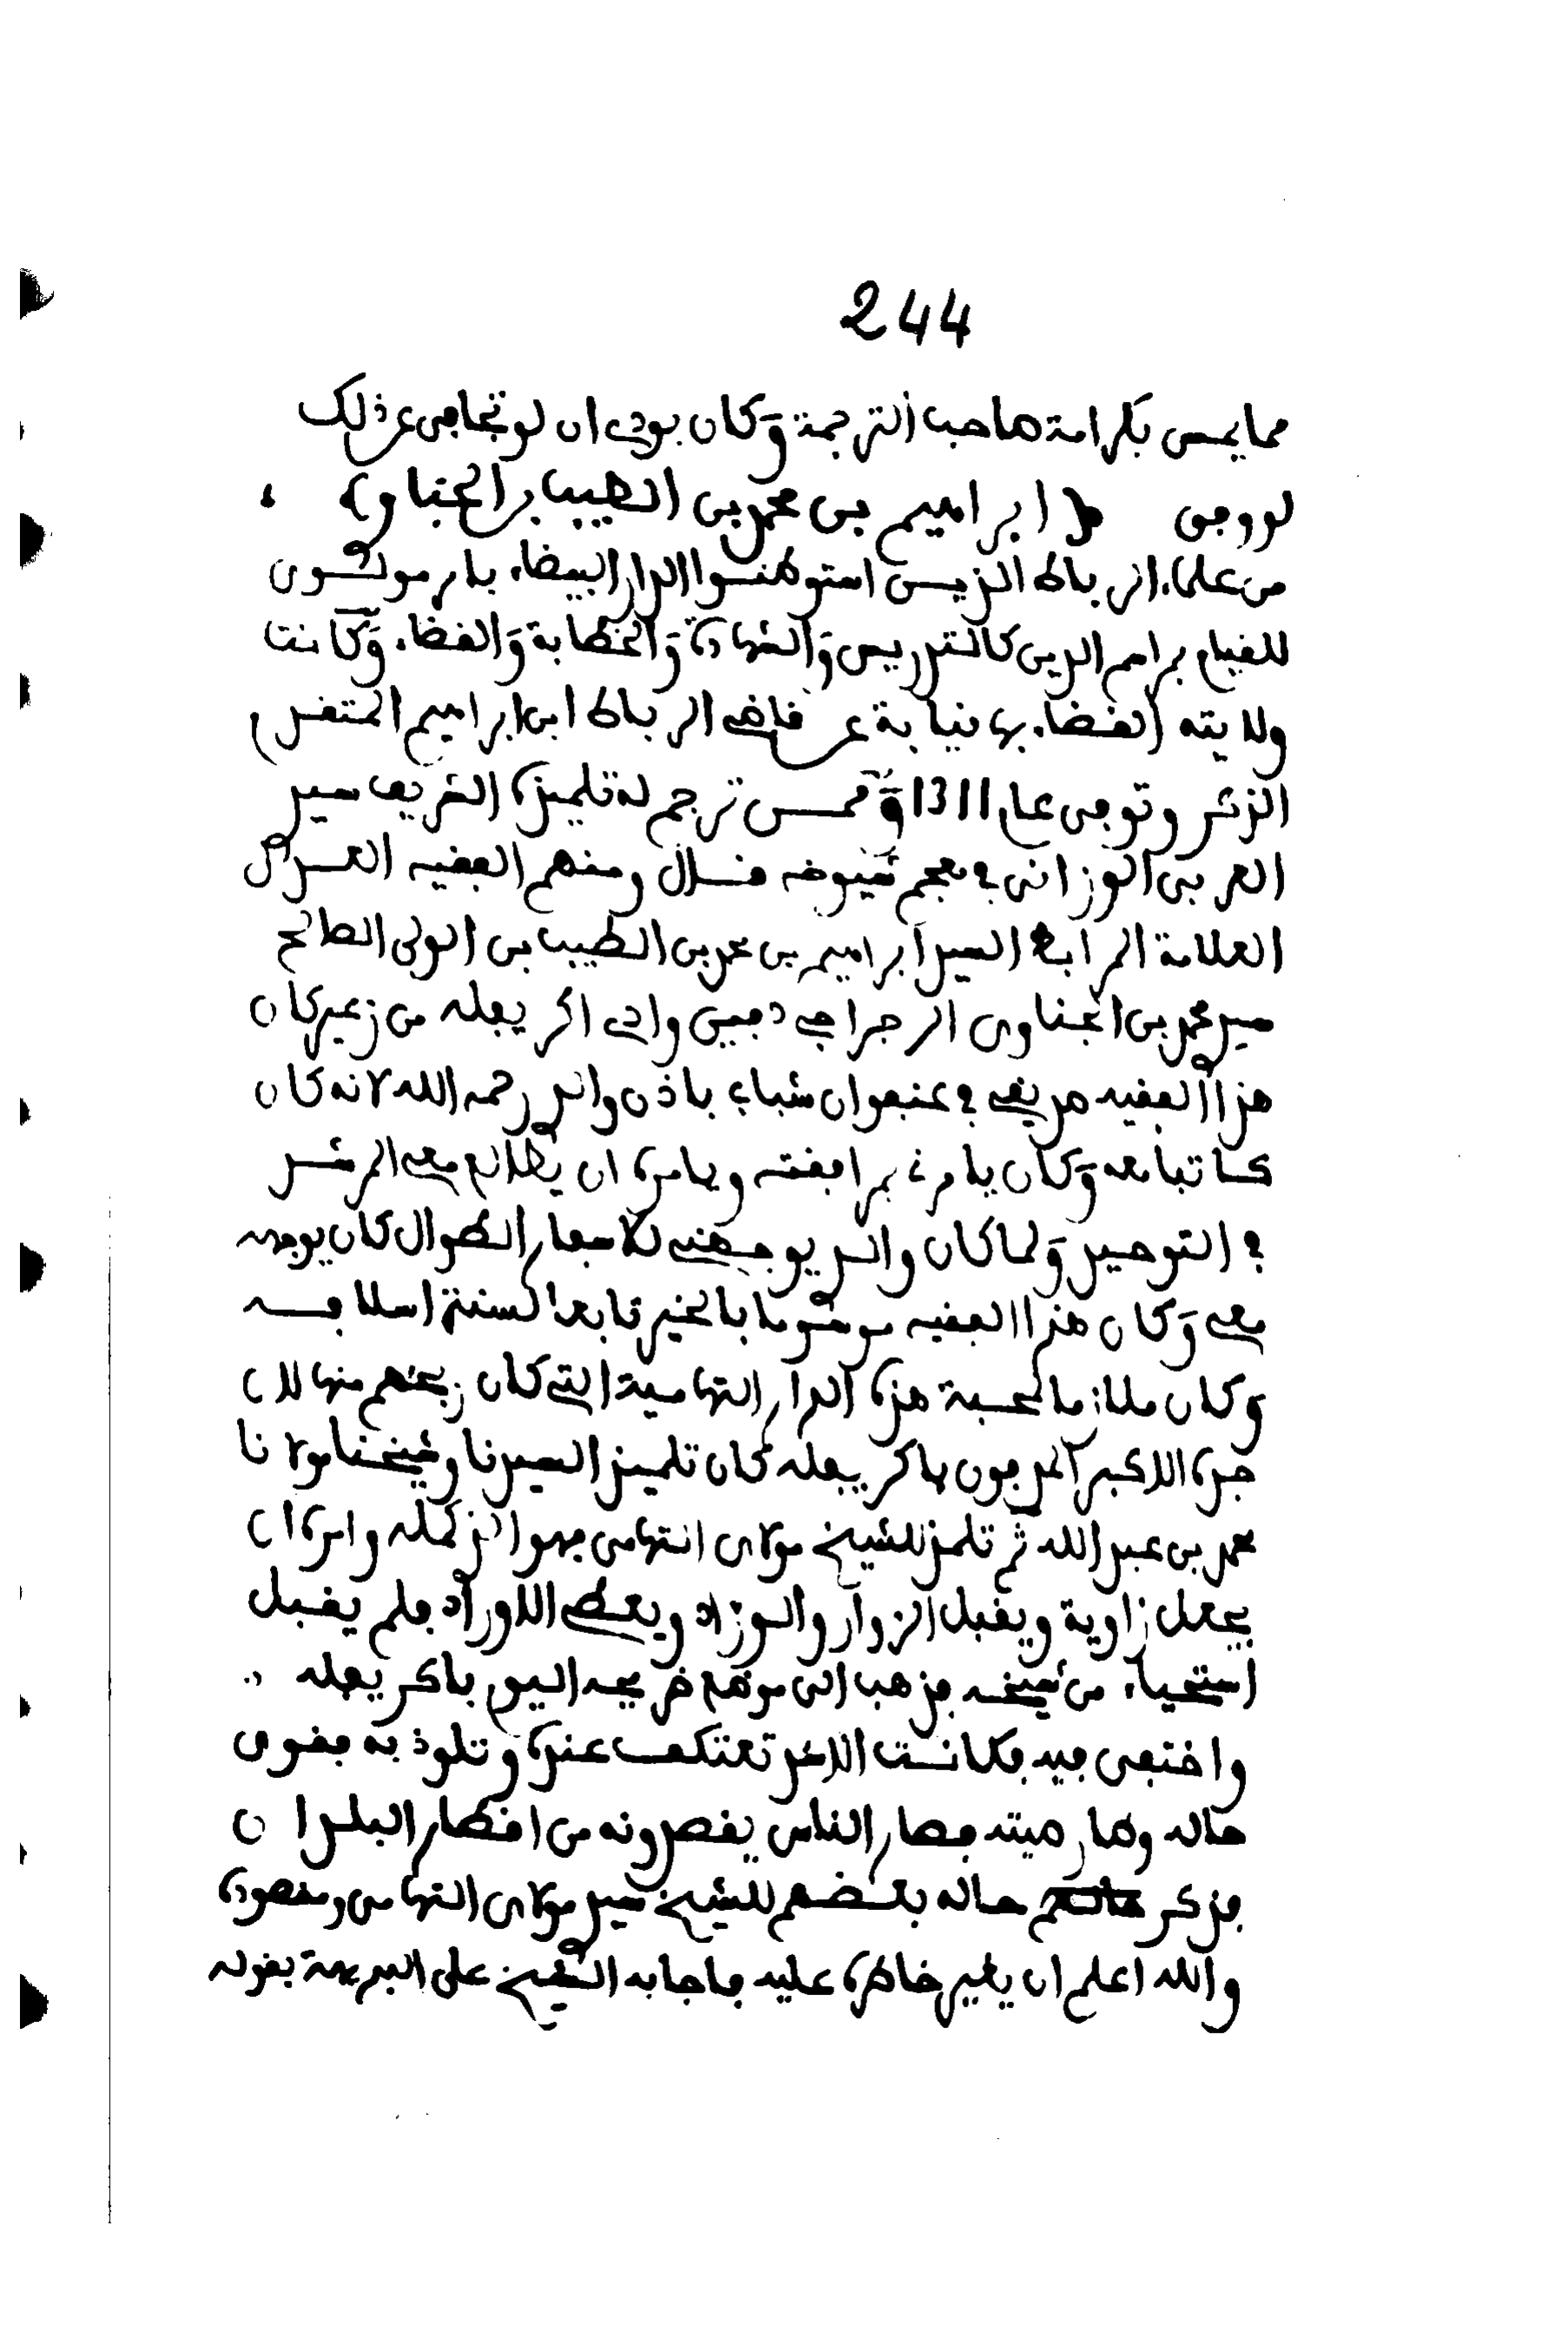 244
مما يمس بكرامة صاحب الترجمة وكان بودي ان لو تجافى عن ذلك
لووفى ﴿ ابراهيم بن محمد بن الطيب بن الحفناوي ﴾ ،
من علماء الرباط الذيـن استوطنـوا الدار البيضاء بامر مولـوي
للقيام بمراسم الدين كالتدريس والشهادة والخطابة والقضاء وكانت
ولايته القضاء بها نيابة عن قاضي الرباط ابن ابراهيم المتقدم
الذكر وتوفى عام 1311 وممـن ترجم له تلميذه الشريف سيد
العربي الوزاني في معجم شيوخه قائلا ومنهم الفقيه العدل
العلامة السيد ابراهيم بن محمد بن الطيب بن الولى الصالح
سيد محمد بن الرجراجي دفين وادي اكريفله من زعير كان
هذا الفقيه صديقي في عنفوان شبابي باذن والدي رحمه الله لانه كان
كاتبا معه وكان يامرني بمرافقته ويامره ان يطالع معي المرشـد
في التوحيد ولما كان والدي يوجهني للاسفار الطوال كان يوجهه
معي وكان هذا الفقيه موسوما بالخير تابعا لسنة اسلافـه
وكان ملازما لمحبة هذه الدار التهامية التي كان بعضهم منها لان
جده الاكبر المدفون باكريفله كان تلميذ السيدنا وشيخنا مولانا
محمد بن عبد الله ثم تلمذ للشيخ مولاى التهامى فهو الذي كمله وامره ان
يجعل زاوية ويقبل الزوار والـوزاد ويعطي الاوراد فلم يقـبل
استحياء من شيخه فذهب الى موضع ضريحه اليوم باكريفله ..
واختفى فيه فكانـت الاسد تعتكف عنده وتلوذ به فقوى
حاله وصار صيته فصار الناس يقصدونه من اقطار البلـدان
فذكر حاله بعـضهم للشيخ سيد مولاى التهامى ومقصوده
والله اعلم ان يغير خاطره عليه فاجابه الشيخ على البديهة بقوله